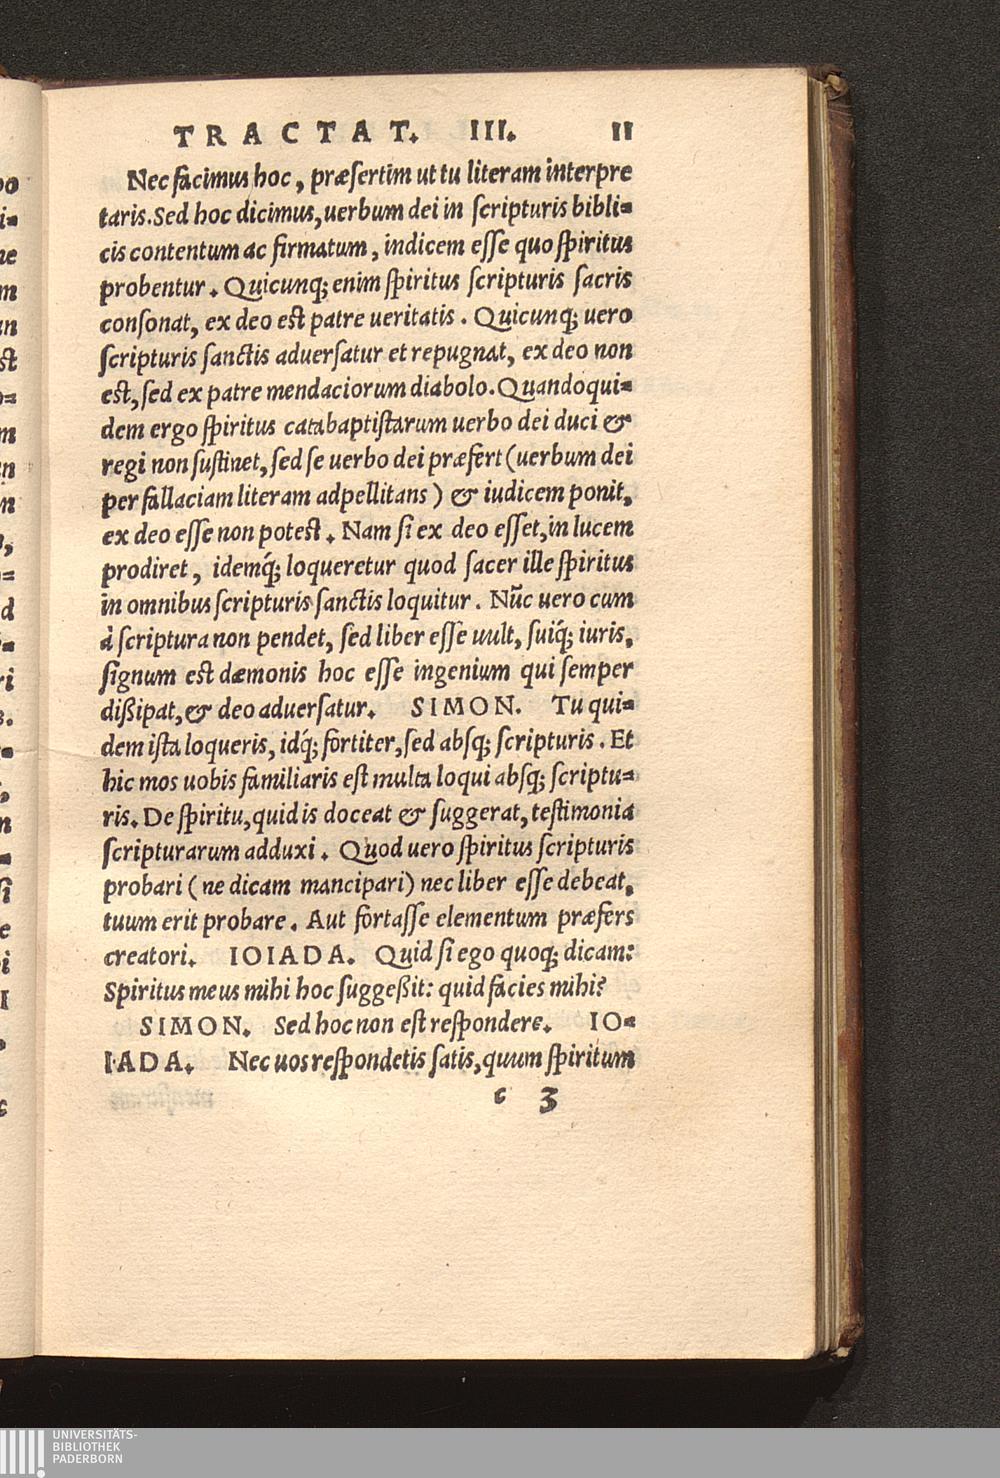 TRACTAT. III. 11
Nec facimus hoc, præsertim ut tu literam interpre
taris. Sed hoc dicimus, uerbum dei in scripturis bibli=
cis contentum ac firmatum, indicem esse quo spiritus
probentur. Quicunq; enim spiritus scripturis sacris
consonat, ex deo est patre ueritatis. Quicunq; uero
scripturis sanctis aduersatur et repugnat, ex deo non
est, sed ex patre mendaciorum diabolo. Quandoqui=
dem ergo spiritus catabaptistarum uerbo dei duci &
regi non sustinet, sed se uerbo dei præfert (uerbum dei
per fallaciam literam adpellitans) & iudicem ponit,
ex deo esse non potest. Nam si ex deo esset, in lucem
prodiret, idemq́; loqueretur quod sacer ille spiritus
in omnibus scripturis sanctis loquitur. Nũc uero cum
à scriptura non pendet, sed liber esse uult, suiq́; iuris,
signum est dæmonis hoc esse ingenium qui semper
dißipat, & deo aduersatur. SIMON. Tu qui=
dem ista loqueris, idq́; fortiter, sed absq; scripturis. Et
hic mos uobis familiaris est multa loqui absq; scriptu=
ris. De spiritu, quid is doceat & suggerat, testimonia
scripturarum adduxi. Quod uero spiritus scripturis
probari (ne dicam mancipari) nec liber esse debeat,
tuum erit probare. Aut fortasse elementum præfers
creatori. IOIADA. Quid si ego quoq; dicam:
Spiritus meus mihi hoc suggeßit: quid facies mihi?
SIMON. Sed hoc non est respondere. IO=
IADA. Nec uos respondetis satis, quum spiritum
c 3
UNIVERSITÄTS-
BIBLIOTHEK
PADERBORN